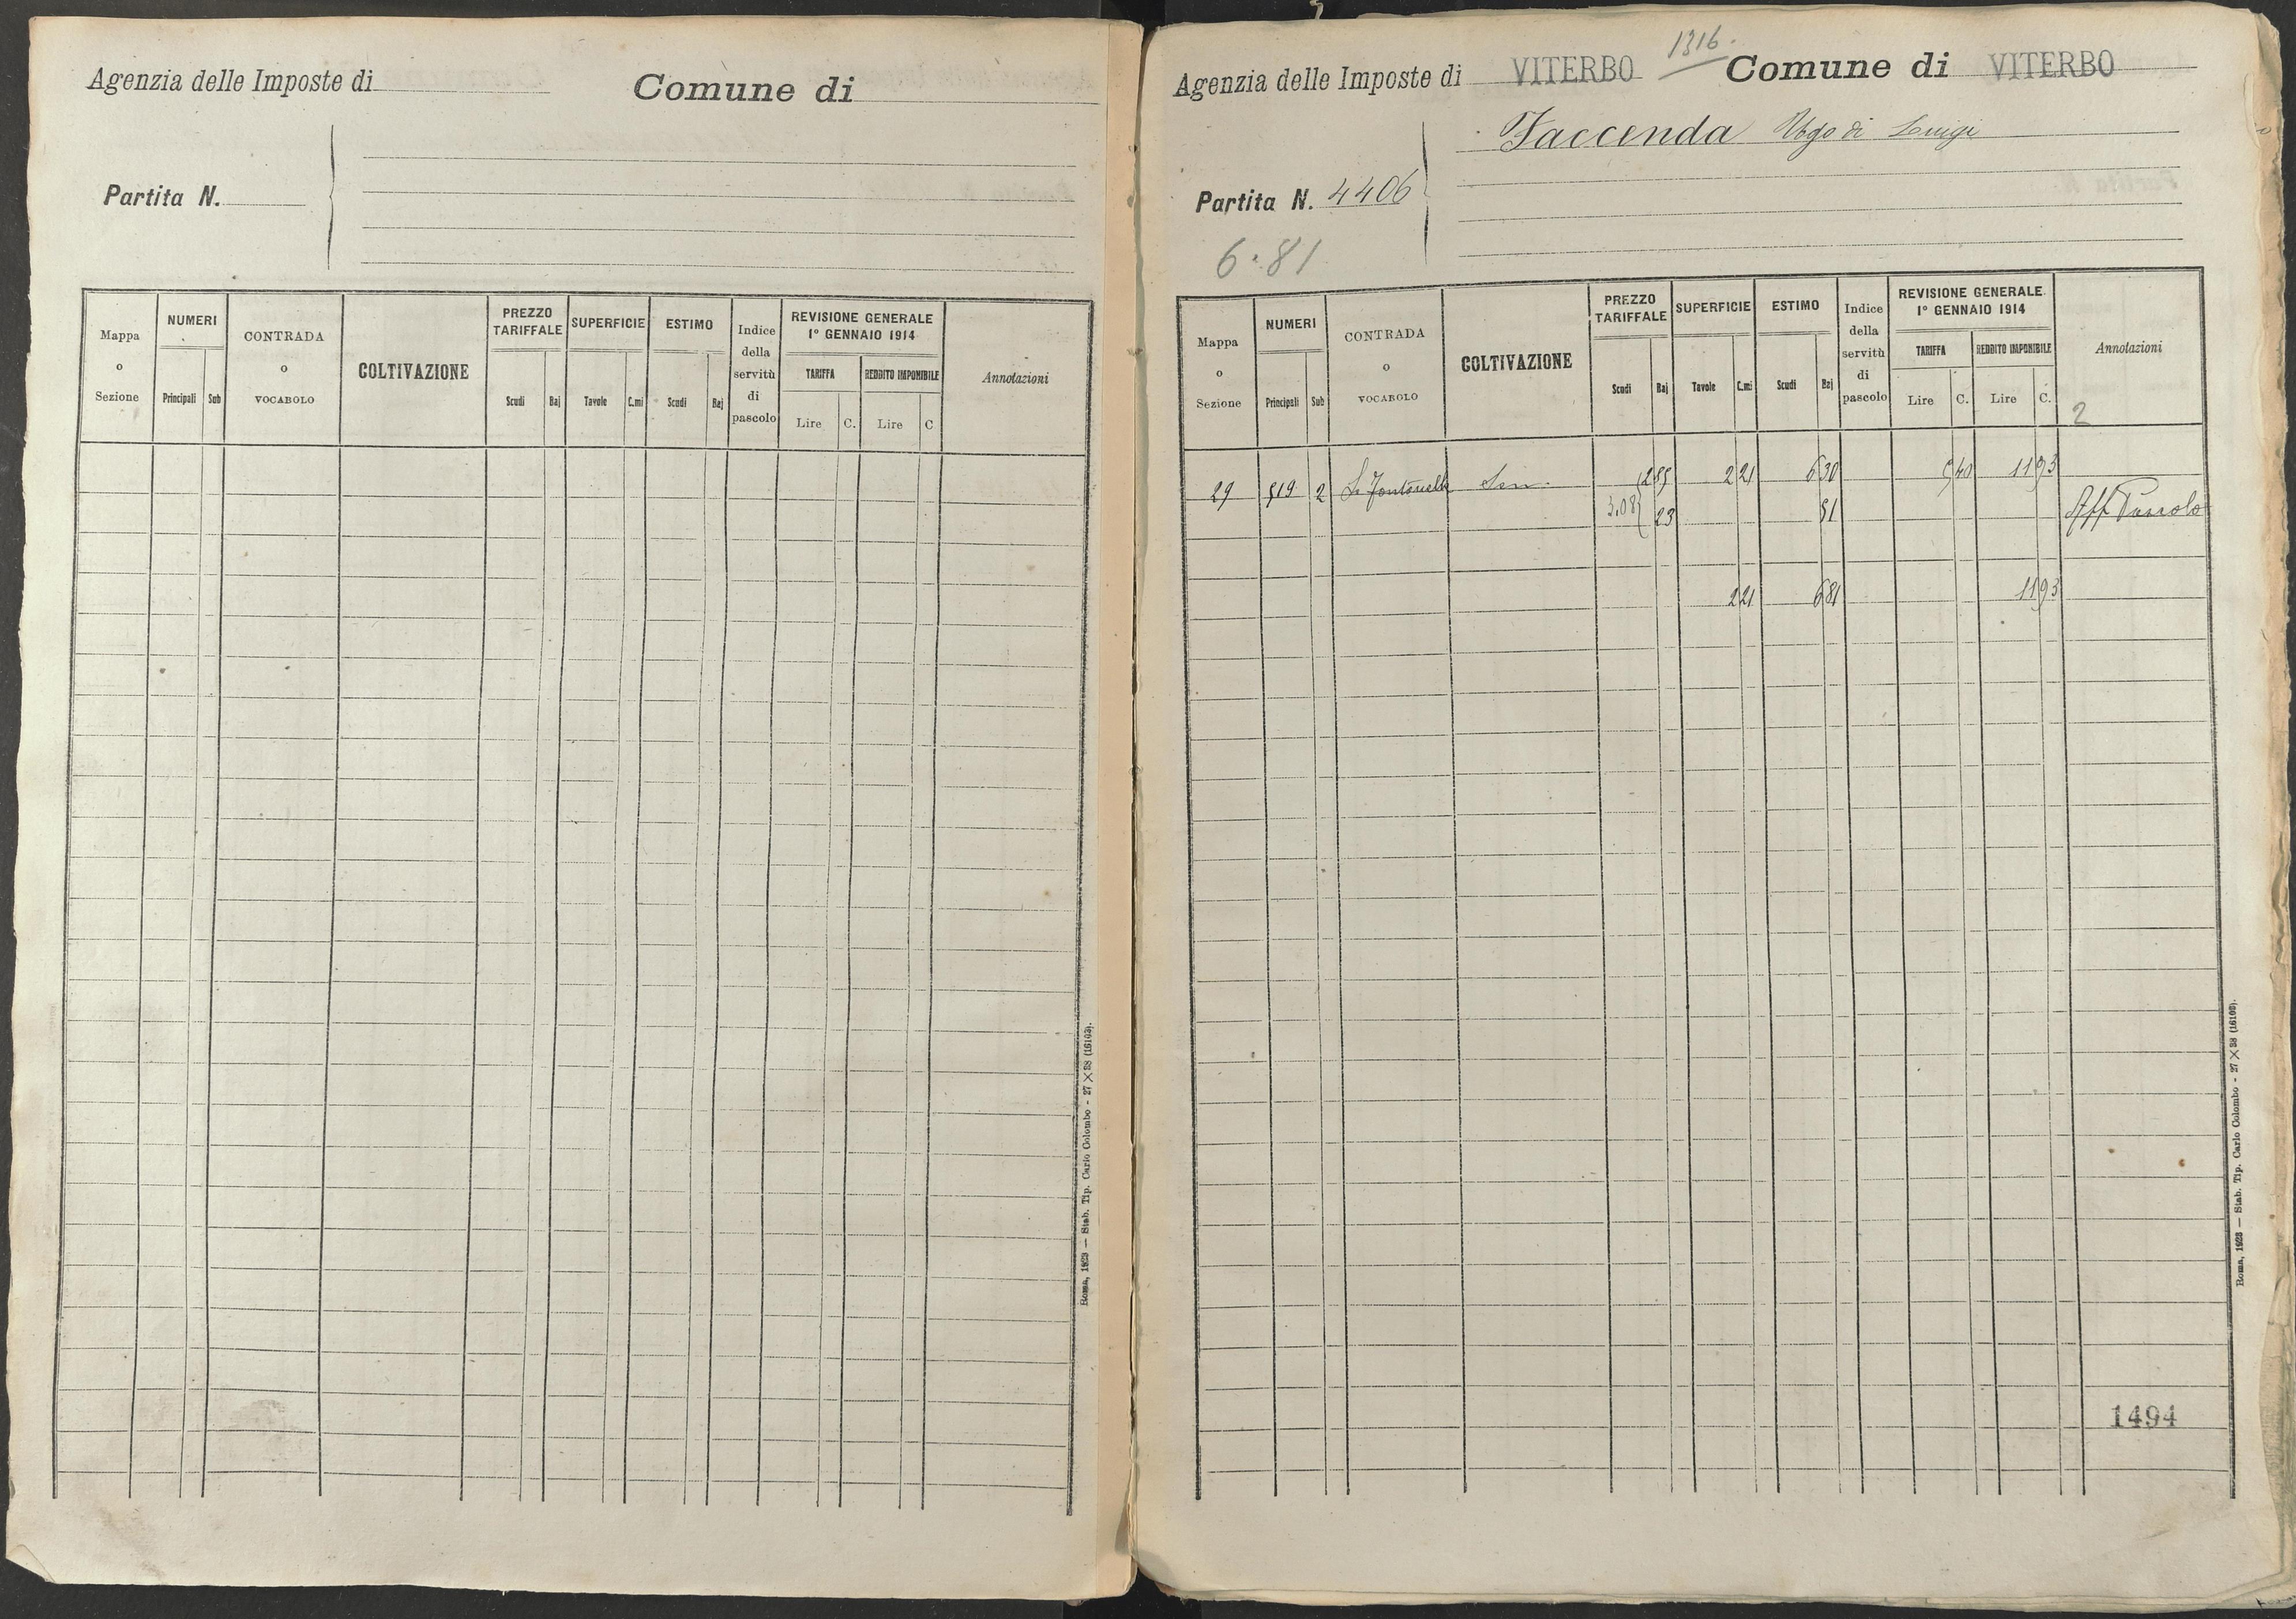 Agenzia delle Imposte di
Comune di
Partita N.
Mappa o Sezione
NUMERI
Principali Sub
CONTRADA o VOCABOLO
COLTIVAZIONE
PREZZO TARIFFALE
Scudi Baj
SUPERFICIE
Tavole C.mi
ESTIMO
Scudi Baj
Indice della servitù di pascolo
REVISIONE GENERALE
1° GENNAIO 1914
TARIFFA REDDITO IMPONIBILE
Lire C. Lire C
Annotazioni
Roma, 1923 — Stab. Tip. Carlo Colombo - 27 X 38 (16103).
1316.
Agenzia delle Imposte di VITERBO Comune di VITERBO
Faccenda Ugo di Luigi
Partita N. 4406
6.81
Mappa o Sezione
NUMERI
Principali Sub
CONTRADA o VOCABOLO
COLTIVAZIONE
PREZZO TARIFFALE
Scudi Baj
SUPERFICIE
Tavole C.mi
ESTIMO
Scudi Baj
Indice della servitù di pascolo
REVISIONE GENERALE
1° GENNAIO 1914
TARIFFA REDDITO IMPONIBILE
Lire C. Lire C.
Annotazioni
2
29 519 2 Le Fontanelle Sem. 2 85 2 21 6 30 5 40 11 93
3.08 23 51
2 21 6 81 11 93
1494
Roma, 1923 — Stab. Tip. Carlo Colombo - 27 X 38 (16103).